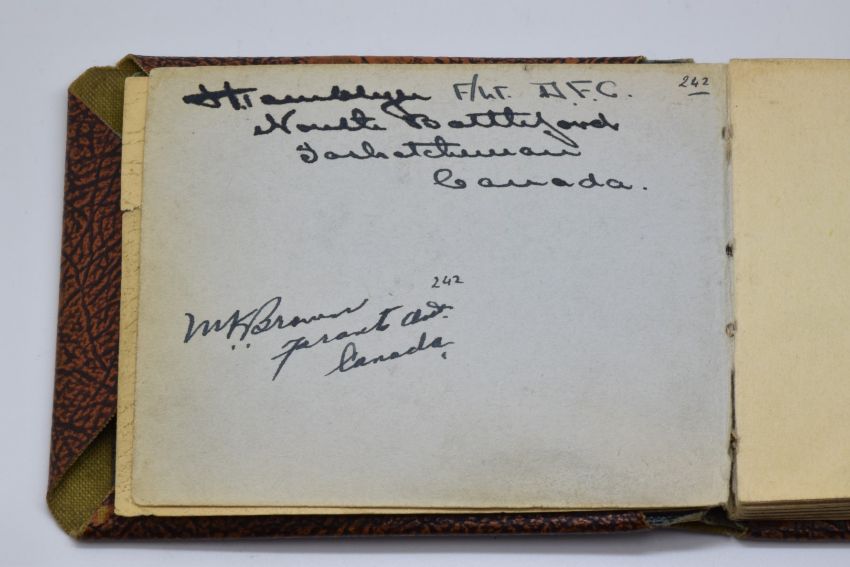 F/Lt. D.F.C. 242
North Battleford
Saskatchewan
Canada.
242
M K Brown
Toronto Ont.
Canada.